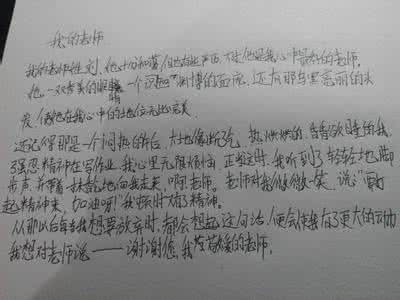 我的老师
我的老师姓刘,她十分和蔼,但也有些严厉,不过她是我心中最好的老师。
她一双秀美的眼睛,一个沉思 渊博的面庞,还有那乌黑亮丽的头
发,使她在我心中的地位无比完美。
还记得那是一个闷热的午后,大地像 ,热烘烘的,昏昏欲睡的我
强忍精神在写作业,我心里无限烦恼,正当这时,我听到了轻轻地脚
步声,并带着一抹 地向我走来,啊,老师。老师对我微微一笑,说:“
起精神来,加油呀!”我顿时有了精神。
从那以后每当我想要放弃时,都会想起这句话,便会使我有了更大的动力
我想对老师说——谢谢您,我 的老师。